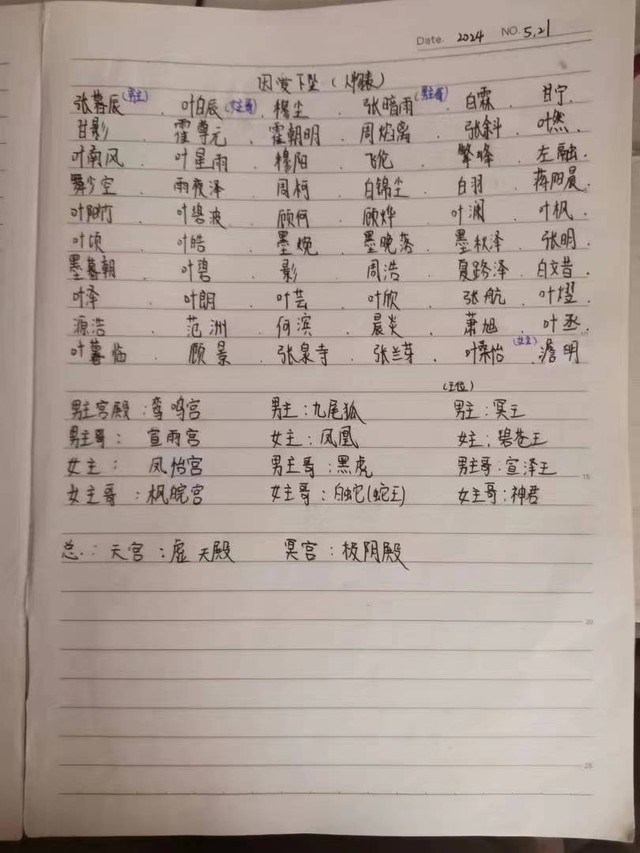 Date. 2024 NO. 5,21
因爱下坠(人物表)
张暮辰(男主)、叶白辰(女主哥)、穆尘、张暗雨(男主哥)、白霖、甘宁、
甘影、霍尊元、霍朝明、周焰离、张斜、叶然、
叶南风、叶星雨、穆阳、飞佗、繁峰、左融、
舞少空、雨夜泽、周柯、白锦尘、白羽、蒋阳晨、
叶阿竹、叶碧波、顾何、顾烨、叶澜、叶枫、
叶顷、叶皓、墨婉、墨晚落、墨秋泽、张明、
墨暮朝、叶碧、影、周浩、夏路泽、白文昔、
叶泽、叶朗、叶芸、叶欣、张航、叶熠、
源浩、范洲、何滨、晨炎、萧旭、叶丞、
叶暮临、顾景、张泉寺、张兰芽、叶桑怡(女主)、澹明
(王位)
男主宫殿:鸾鸣宫 男主:九尾狐 男主:冥王
男主哥:宣雨宫 女主:凤凰 女主:碧苍王
女主:凤怡宫 男主哥:黑虎 男主哥:宣泽王
女主哥:枫皖宫 女主哥:白蛇(蛇王) 女主哥:神君
15
总.:天宫:虚天殿 冥宫:极阴殿
20
25